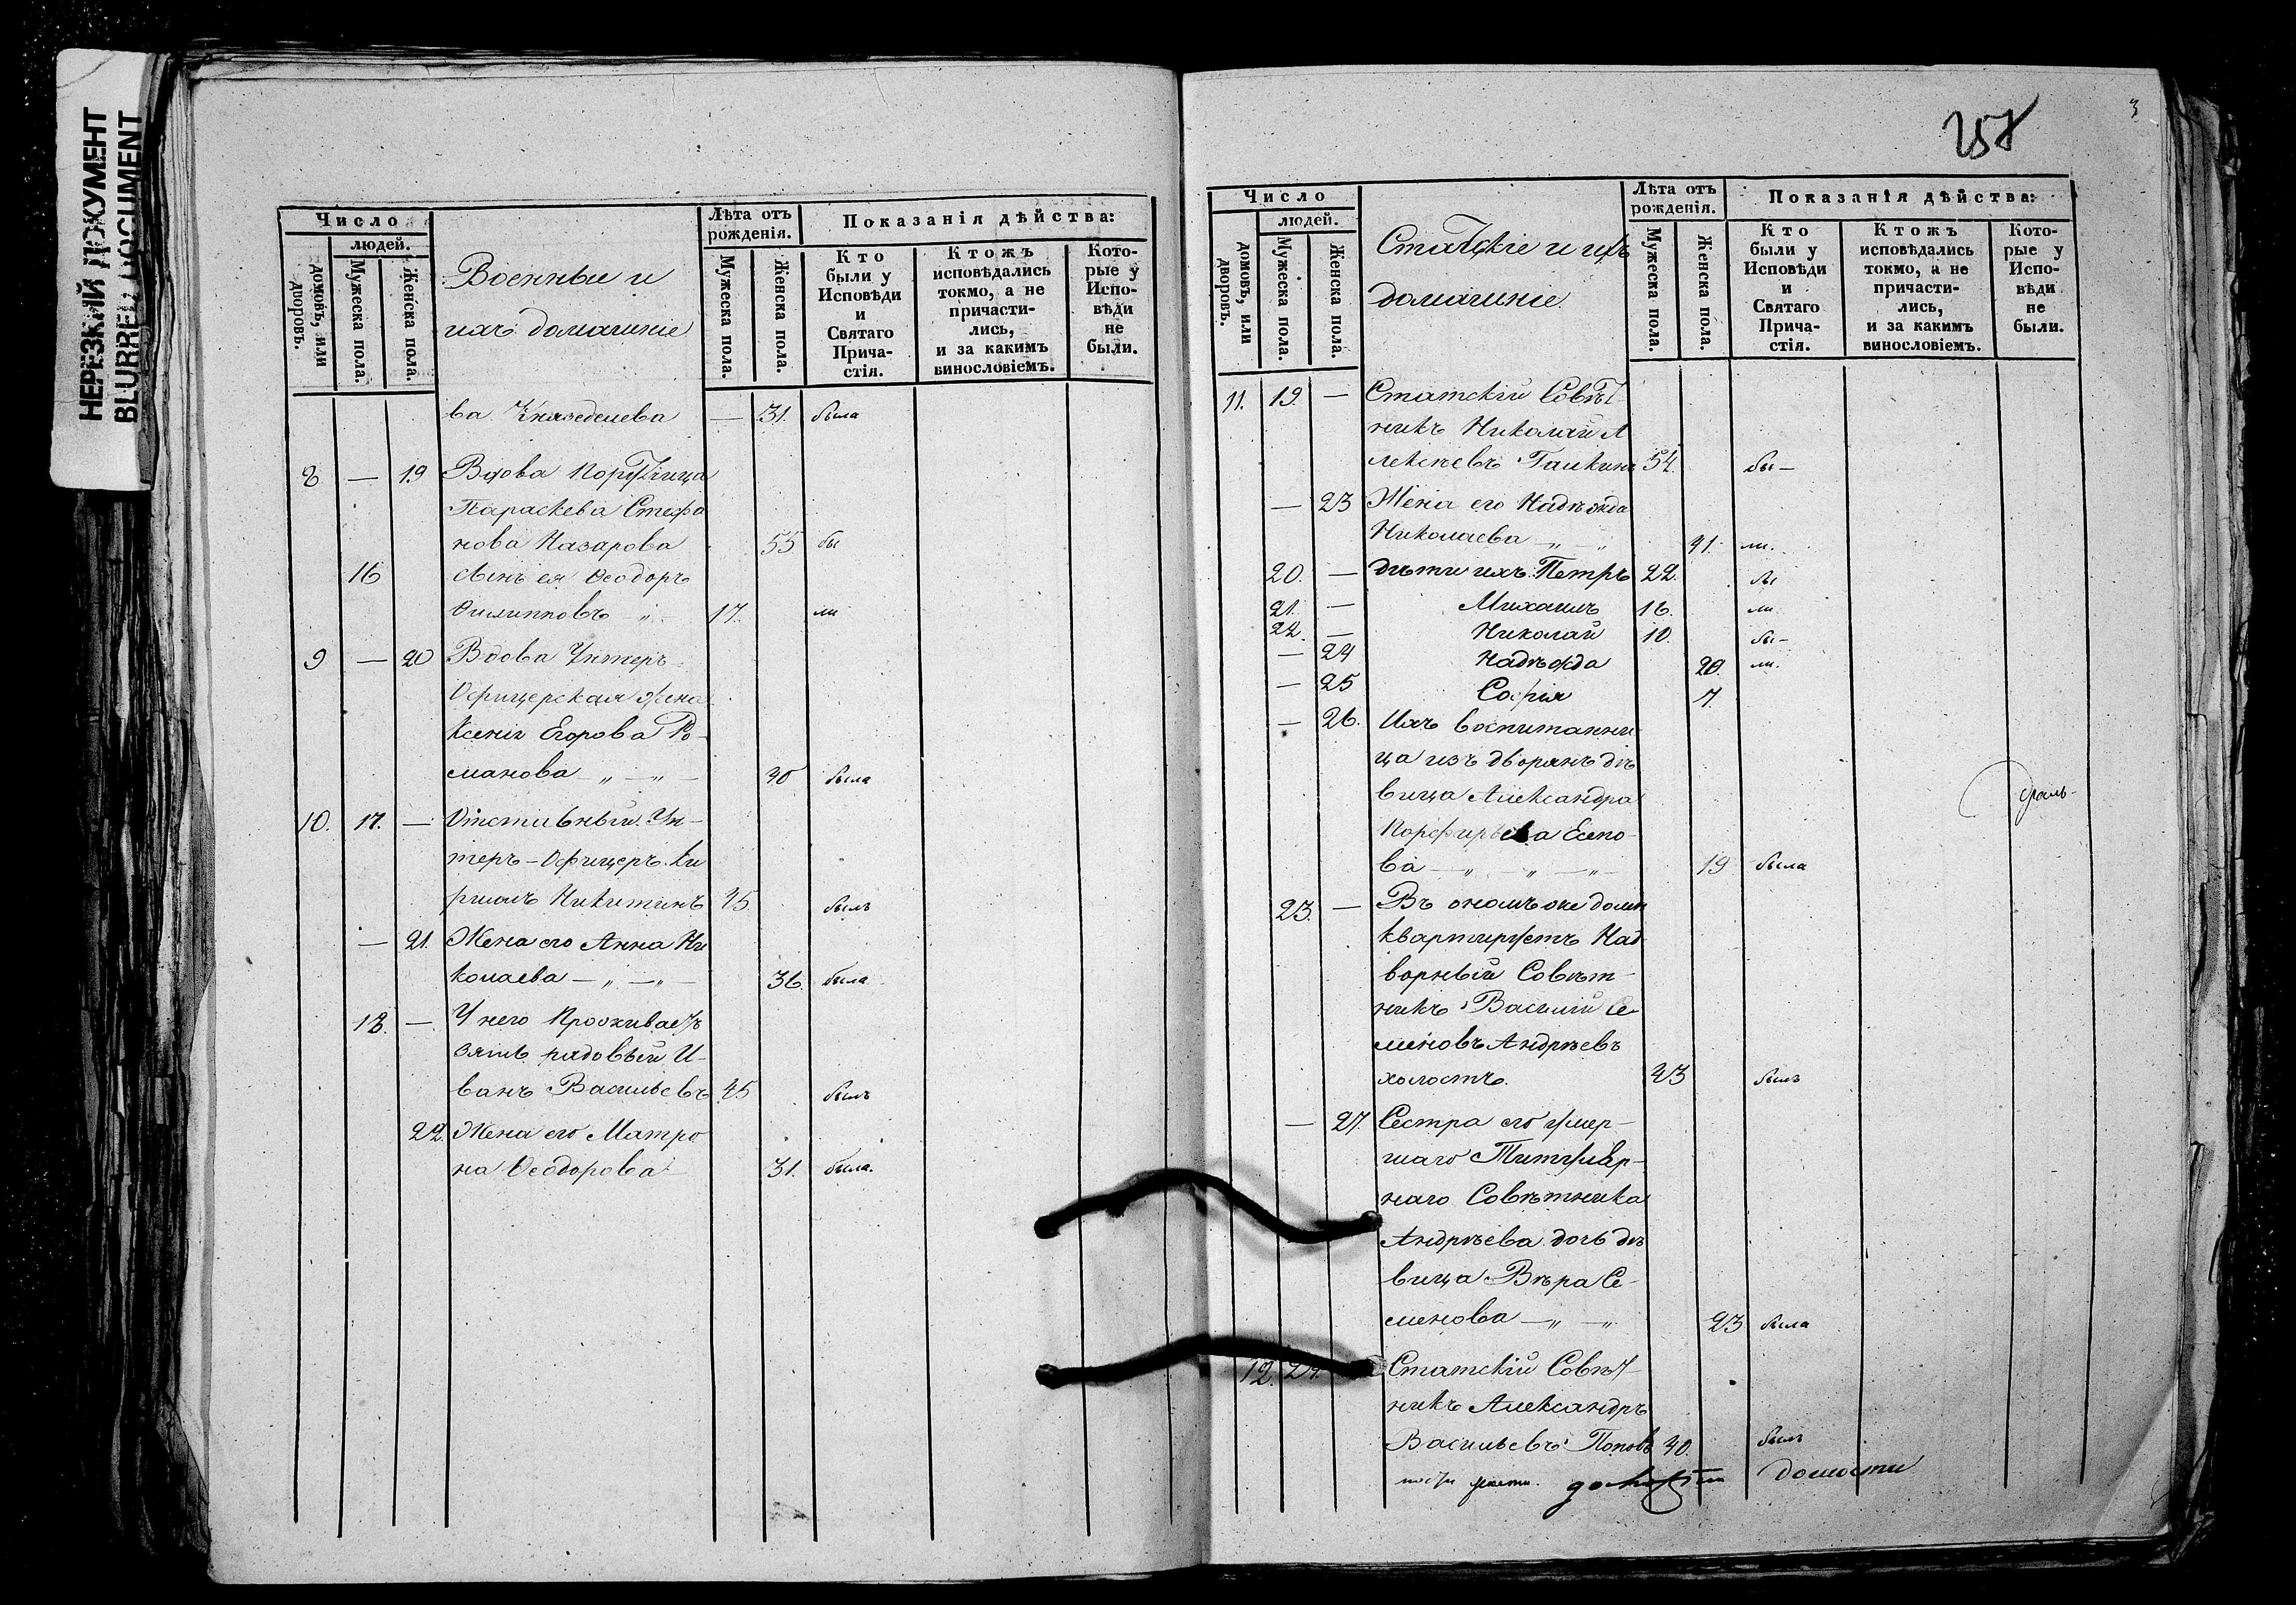 НЕРЕЗКИЙ ДОКУМЕНТ
BLURRED DOCUMENT
Число
людей.
домовъ, или дворовъ.
Мужеска пола.
Женска пола.
Военные и
ихъ домашніе
Лѣта отъ рожденія.
Мужеска пола.
Женска пола.
Показанія дѣйства:
Кто были у Исповѣди и Святаго Прича-стія.
Ктожъ исповѣдались токмо, а не причасти-лись, и за какимъ винословіемъ.
Кото-рые у Испо-вѣди не были.
ва — 31. была
8 — 19 Вдова Портчица
Параскева Стефа
нова Назарова 55 бы
16 сынъ ея Ѳеодоръ
Филипповъ „ 17. ли
9 — 20 Вдова Унтеръ
Офицерская жена
Ксенія Егорова Ро-
манова „ — „ — 40 была
10. 17. — Отставный Ун-
теръ-Офицеръ Ки
риллъ Никитинъ 45. былъ
— 21. Жена его Анна Ни
колаева — „ — „ — 36. была
18. — У него Проживаетъ
зять рядовый И-
ванъ Васильевъ 45 былъ
22. Жена его Матро
на Ѳеодорова 31. была.
3
258
Число
людей.
домовъ, или дворовъ.
Мужеска пола.
Женска пола.
Статскіе и ихъ
домашніе.
Лѣта отъ рожденія.
Мужеска пола.
Женска пола.
Показанія дѣйства:
Кто были у Исповѣди и Святаго Прича-стія.
Ктожъ исповѣдались токмо, а не причасти-лись, и за какимъ винословіемъ.
Кото-рые у Испо-вѣди не были.
11. 19. — Статскій Совѣт
никъ Николай А
лексѣевъ Галкинъ 54. бы —
— 23 Жена его Надѣжда
Николаева „ — „ 41. ли.
20. — дѣти ихъ Петръ 22. бы
21. — Михаилъ 16. ли
22. — Николай 10. бы —
— 24 Надѣжда 20. ли.
— 25 Софія 7.
— 26. Ихъ воспитанни
ца изъ дворянъ дѣ
вица Александра
Порфирьева Есипо-
ва — „ — „ — „ — 19 была
23. — Въ ономъ же домѣ
квартируетъ Над
ворный Совѣт-
никъ Василій Се
меновъ Андрѣевъ
холостъ. 43 былъ
— 27. Сестра его умер-
шаго Титуляр-
наго Совѣтника
Андрѣева дочь дѣ
вица Вѣра Се-
менова — „ — „ 23 была
12. 24. Статскій Совѣт-
никъ Александръ
Васильевъ Поповъ 40. былъ